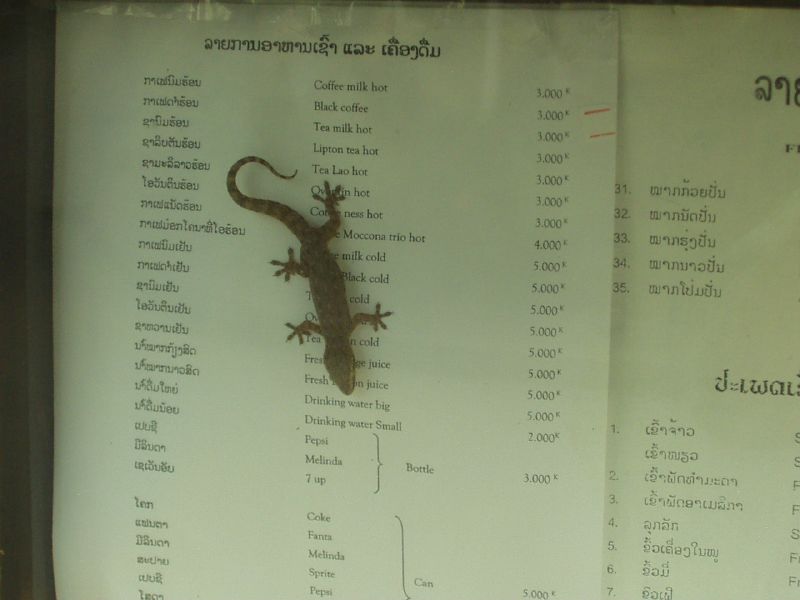 ລາຍການອາຫານເຊົ້າ ແລະ ເຄື່ອງດື່ມ
ກາເຟນົມຮ້ອນ Coffee milk hot 3.000 K
ກາເຟດຳຮ້ອນ Black coffee 3.000 K
ຊານົມຮ້ອນ Tea milk hot 3.000 K
ຊາລິບຕັນຮ້ອນ Lipton tea hot 3.000 K
ຊາມະລິລາວຮ້ອນ Tea Lao hot 3.000 K
ໂອວັນຕິນຮ້ອນ hot 3.000 K
ກາເຟເນັດຮ້ອນ ness hot 3.000 K
ກາເຟມ໋ອກໂຄນາທີໂອຮ້ອນ Moccona trio hot 4.000 K
ກາເຟນົມເຢັນ milk cold 5.000 K
ກາເຟດຳເຢັນ Black cold 5.000 K
ຊານົມເຢັນ cold 5.000 K
ໂອວັນຕິນເຢັນ 5.000 K
ຊາຫວານເຢັນ Tea cold 5.000 K
ນ້ຳໝາກກ້ຽງສົດ Fresh juice 5.000 K
ນ້ຳໝາກນາວສົດ Fresh juice 5.000 K
ນ້ຳດື່ມໃຫຍ່ Drinking water big 5.000 K
ນ້ຳດື່ມນ້ອຍ Drinking water Small 2.000 K
ເປບຊີ Pepsi
ມີລິນດາ Melinda Bottle 3.000 K
ເຊເວັນອັບ 7 up
ໂຄກ Coke
ແຟນຕາ Fanta
ມີລິນດາ Melinda
ສະປາຍ Sprite Can
ເປບຊີ Pepsi 5.000 K
ໂຊດາ
31. ໝາກກ້ວຍປັ່ນ
32. ໝາກນັດປັ່ນ
33. ໝາກຮຸ່ງປັ່ນ
34. ໝາກນາວປັ່ນ
35. ໝາກໂປ່ມປັ່ນ
1. ເຂົ້າຈ້າວ
ເຂົ້າໜຽວ
2. ເຂົ້າຜັດທຳມະດາ
3. ເຂົ້າຜັດອາເມລິກາ
4. ລຸກລັກ
5. ຂົ້ວເຄື່ອງໃນໝູ
6. ຂົ້ວມີ່
7. ຂົ້ວເຝີ